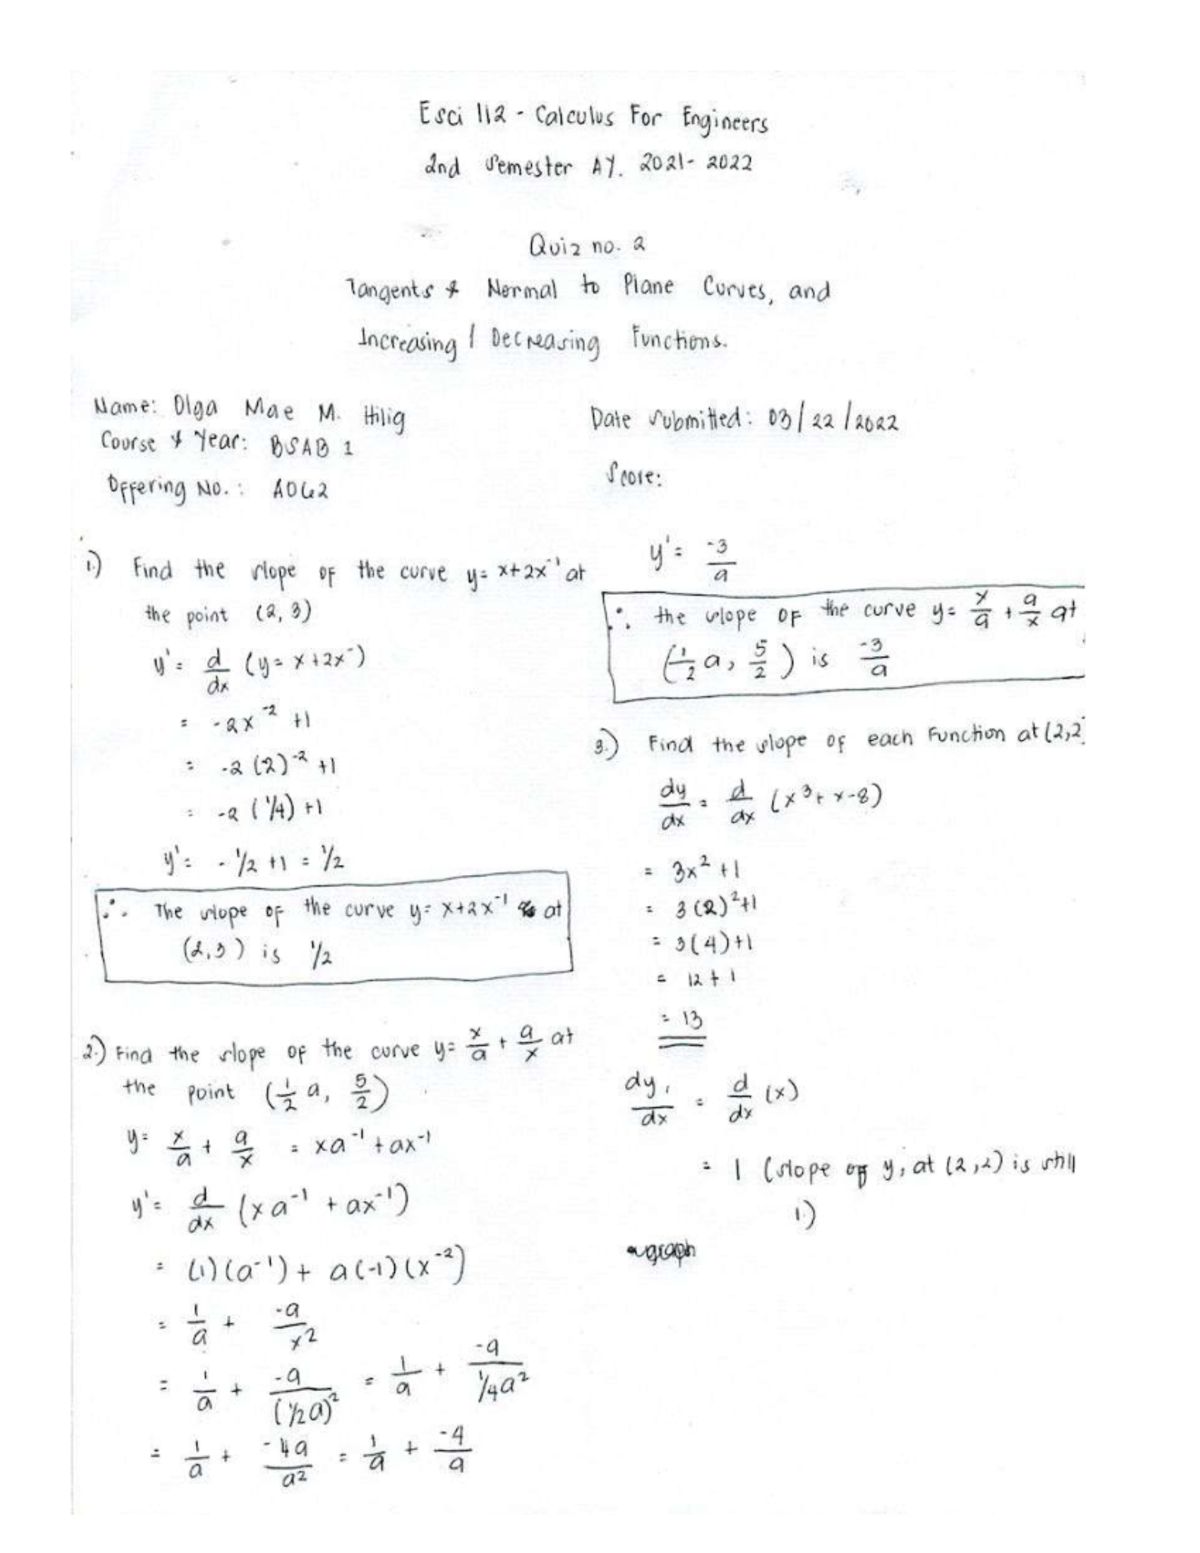 Esci 112 - Calculus For Engineers
2nd Semester AY. 2021- 2022
Quiz no. 2
Tangents & Normal to Plane Curves, and
Increasing / Decreasing Functions.
Name: Olga Mae M. Hilig
Course & Year: BSAB 1
Offering No.: A062
Date Submitted: 03/22/2022
Score:
1.) Find the slope of the curve y= x+2x⁻¹ at
the point (2, 3)
y'= d/dx (y= x+2x⁻)
= -2x⁻² +1
= -2 (2)⁻² +1
= -2 (1/4) +1
y'= - 1/2 +1 = 1/2
∴ The slope of the curve y= x+2x⁻¹ at
(2,3) is 1/2
2.) Find the slope of the curve y= x/a + a/x at
the point (1/2 a, 5/2)
y= x/a + a/x = xa⁻¹ + ax⁻¹
y'= d/dx (xa⁻¹ + ax⁻¹)
= (1)(a⁻¹) + a(-1)(x⁻²)
= 1/a + -a/x²
= 1/a + -a/(1/2a)² = 1/a + -a/1/4a²
= 1/a + -4a/a² = 1/a + -4/a
y'= -3/a
∴ the slope of the curve y= x/a + a/x at
(1/2 a, 5/2) is -3/a
3.) Find the slope of each Function at (2,2)
dy/dx = d/dx (x³+ x-8)
= 3x² +1
= 3(2)²+1
= 3(4)+1
= 12 + 1
= 13
dy₁/dx = d/dx (x)
= 1 (slope of y, at (2,2) is still
1.)